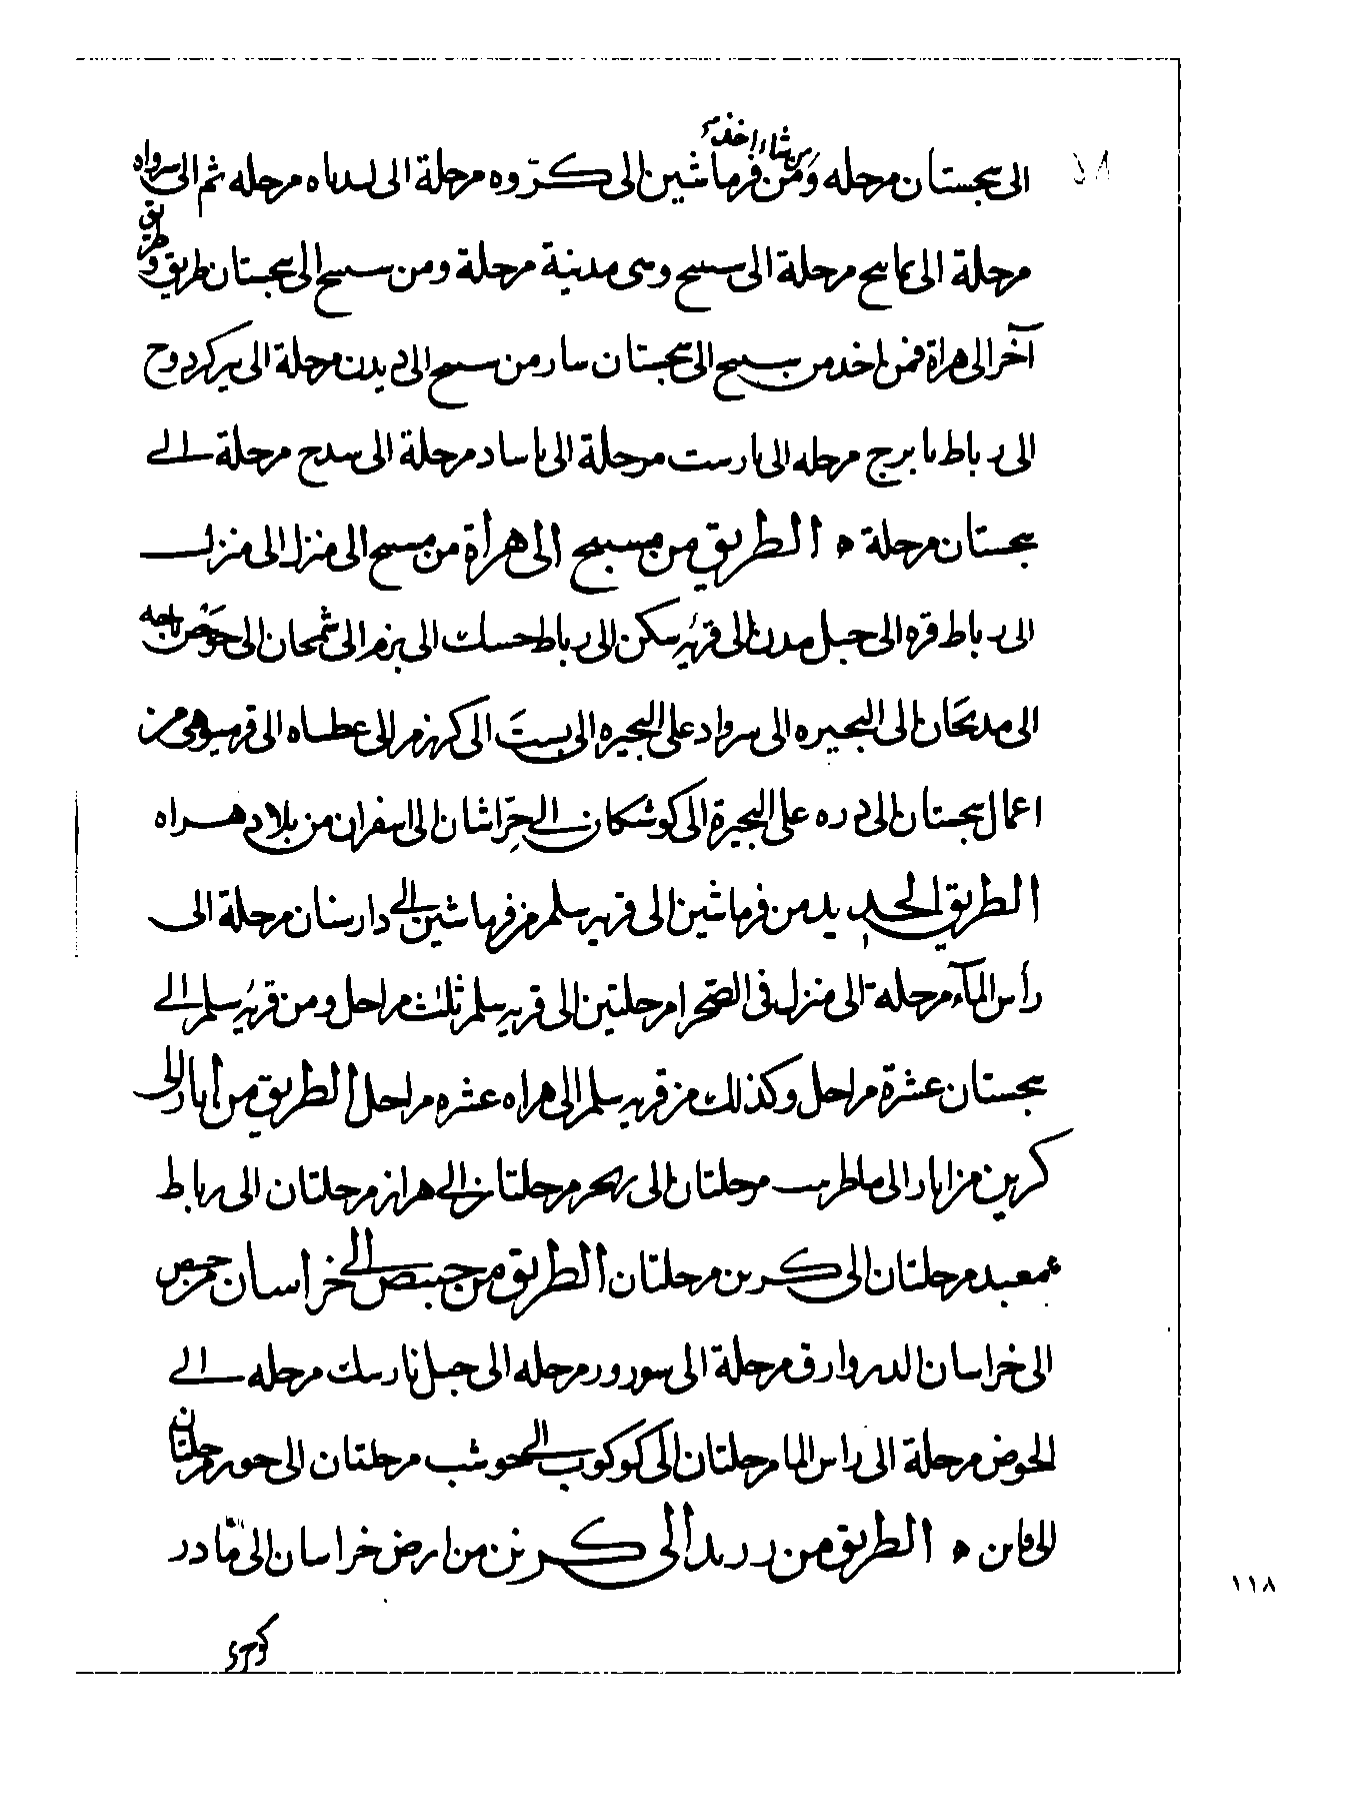 من شاء اخذ
الى سجستان مرحله ومن فرماشين الى كروه مرحلة الى لسداه مرحله ثم الى سرواه
مرحلة الى ماسح مرحلة الى سسح وهى مدينة مرحلة ومن سسح الى سجستان طريق وطريق
آخر الى هراة فمن اخد من سسح الى سجستان سار من سسح الى ديدن مرحلة الى يركردوح
الى رباط بابرج مرحله الى بارست مرحلة الى باساد مرحلة الى سدح مرحلة الى
سجستان مرحلة ه الطريق من مسبح الى هرأة من مسح الى منزل الى منزل
الى رباط قره الى جبل مدن الى قريه سكن الى رباط حسات الى بزم الى شمحان الى حوض باجه
الى مديحان الى البحيره الى سرواد على البحيره الى بست الى كهزم الى عطساه الى قريسو هى من
اعمال سجستان الى دره على البحيرة الى كوشكان الى جراشان الى اسفران من بلاد هراه
الطريق الجديد من فرماشين الى قريه سلم من فرماشين الى دارستان مرحلة الى
رأس المآء مرحلة الى منزل فى الصحرا مرحلتين الى قريه سلم ثلث مراحل ومن قريه سلم الى
سجستان عشرة مراحل وكذلك من قريه سلم الى هراه عشره مراحل الطريق من أبار الى
كرين من ابار الى ماطربـ مرحلتان الى ريحر مرحلتان الى هراز مرحلتان الى رباط
معبد مرحلتان الى كرين مرحلتان الطريق من خبيص الى خراسان من خبيص
الى خراسان الدروارق مرحلة الى سورور مرحله الى جبل نارسك مرحله الى
الحوض مرحلة الى راس الما مرحلتان الى كوكوب الى حوشب مرحلتان الى حور مرحلتان
الى قاين ه الطريق من يزد الى كرين من ارض خراسان الى قادر
١١٨